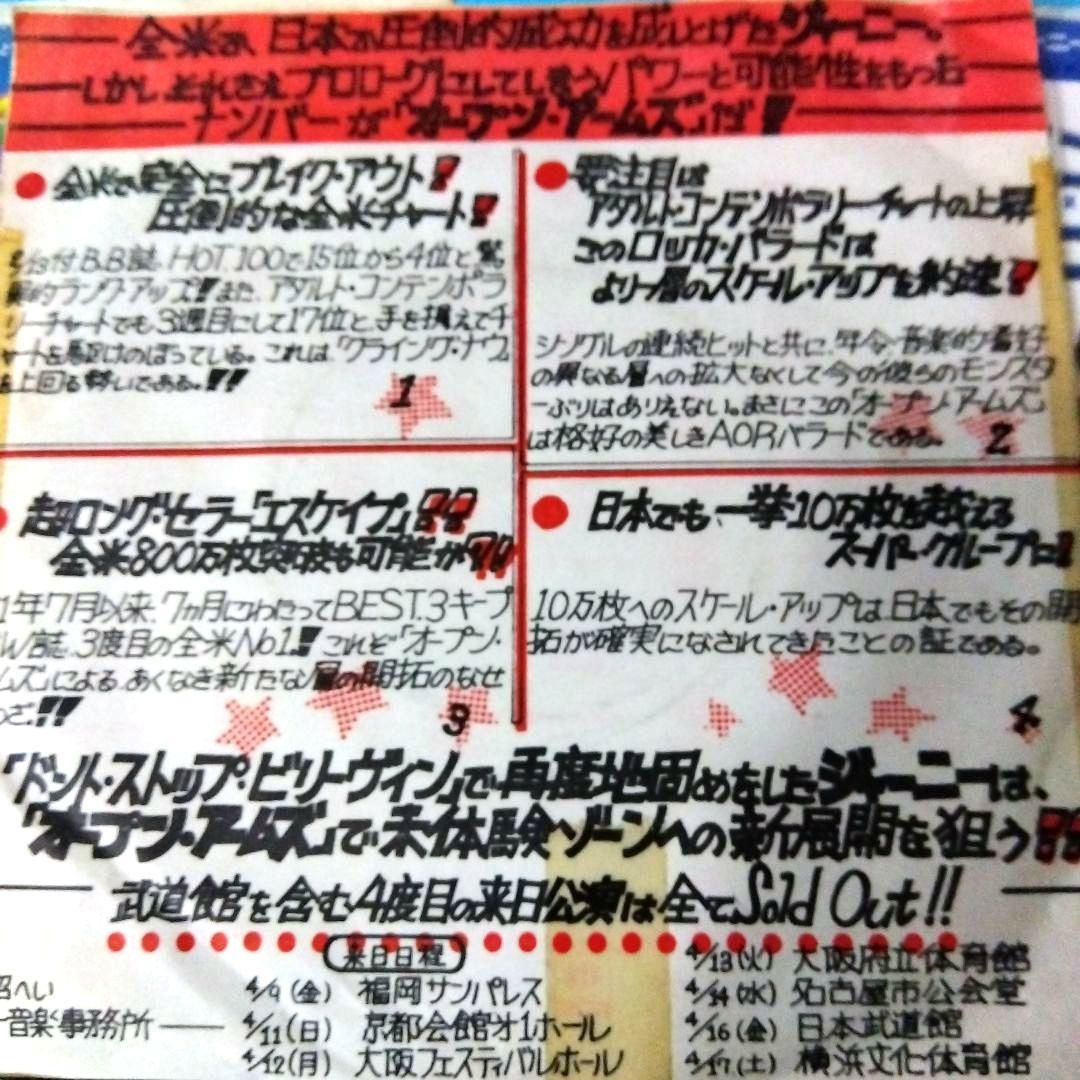 全米が、日本が圧倒的成功を成しとげたジャーニー。
しかし、それさえプロローグにしてしまうパワーと可能性をもった
ナンバーが「オープン・アームズ」だ!!
● 全米で完全にブレイク・アウト!!
圧倒的な全米チャート!!
付B.B誌、HOT 100で15位から4位と、驚
的ランク・アップ!!また、アダルト・コンテンポラ
リーチャートでも3週目にして17位と、手を携えてチ
ャートを駆けのぼっている。これは「クライング・ナウ」
を上回る勢いである。!!
1
● 要注目は
アダルト・コンテンポラリーチャートの上昇
このロッカ・バラードは
より一層のスケール・アップを約束!!
シングルの連続ヒットと共に、年令、音楽的嗜好
の異なる層への拡大なくして今の彼らのモンスタ
ーぶりはありえない。まさにこの「オープン・アームズ」
は格好の美しきAORバラードである。
2
● 超ロング・セラー「エスケイプ」!!
全米800万枚突破も可能か?!
1年7月以来、7カ月にわたってBEST.3キープ
W誌、3度目の全米No.1!!これぞ「オープン・
ムズ」による、あくなき新たな層の開拓のなせ
わざ!!
3
● 日本でも、一挙10万枚を越える
スーパー・グループに!!
10万枚へのスケール・アップは、日本でもその開
拓が確実になされてきたことの証である。
4
「ドント・ストップ・ビリーヴィン」で再度地固めをしたジャーニーは、
「オープン・アームズ」で未体験ゾーンへの新展開を狙う!!
武道館を含む4度目の来日公演は全てSold Out!!
来日日程
招へい
音楽事務所
4/9(金) 福岡サンパレス
4/11(日) 京都会館オ1ホール
4/12(月) 大阪フェスティバルホール
4/13(火) 大阪府立体育館
4/14(水) 名古屋市公会堂
4/16(金) 日本武道館
4/17(土) 横浜文化体育館